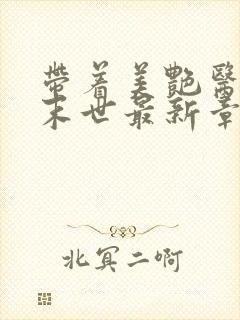 带着美艷醫
末世最新章
北冥二啊